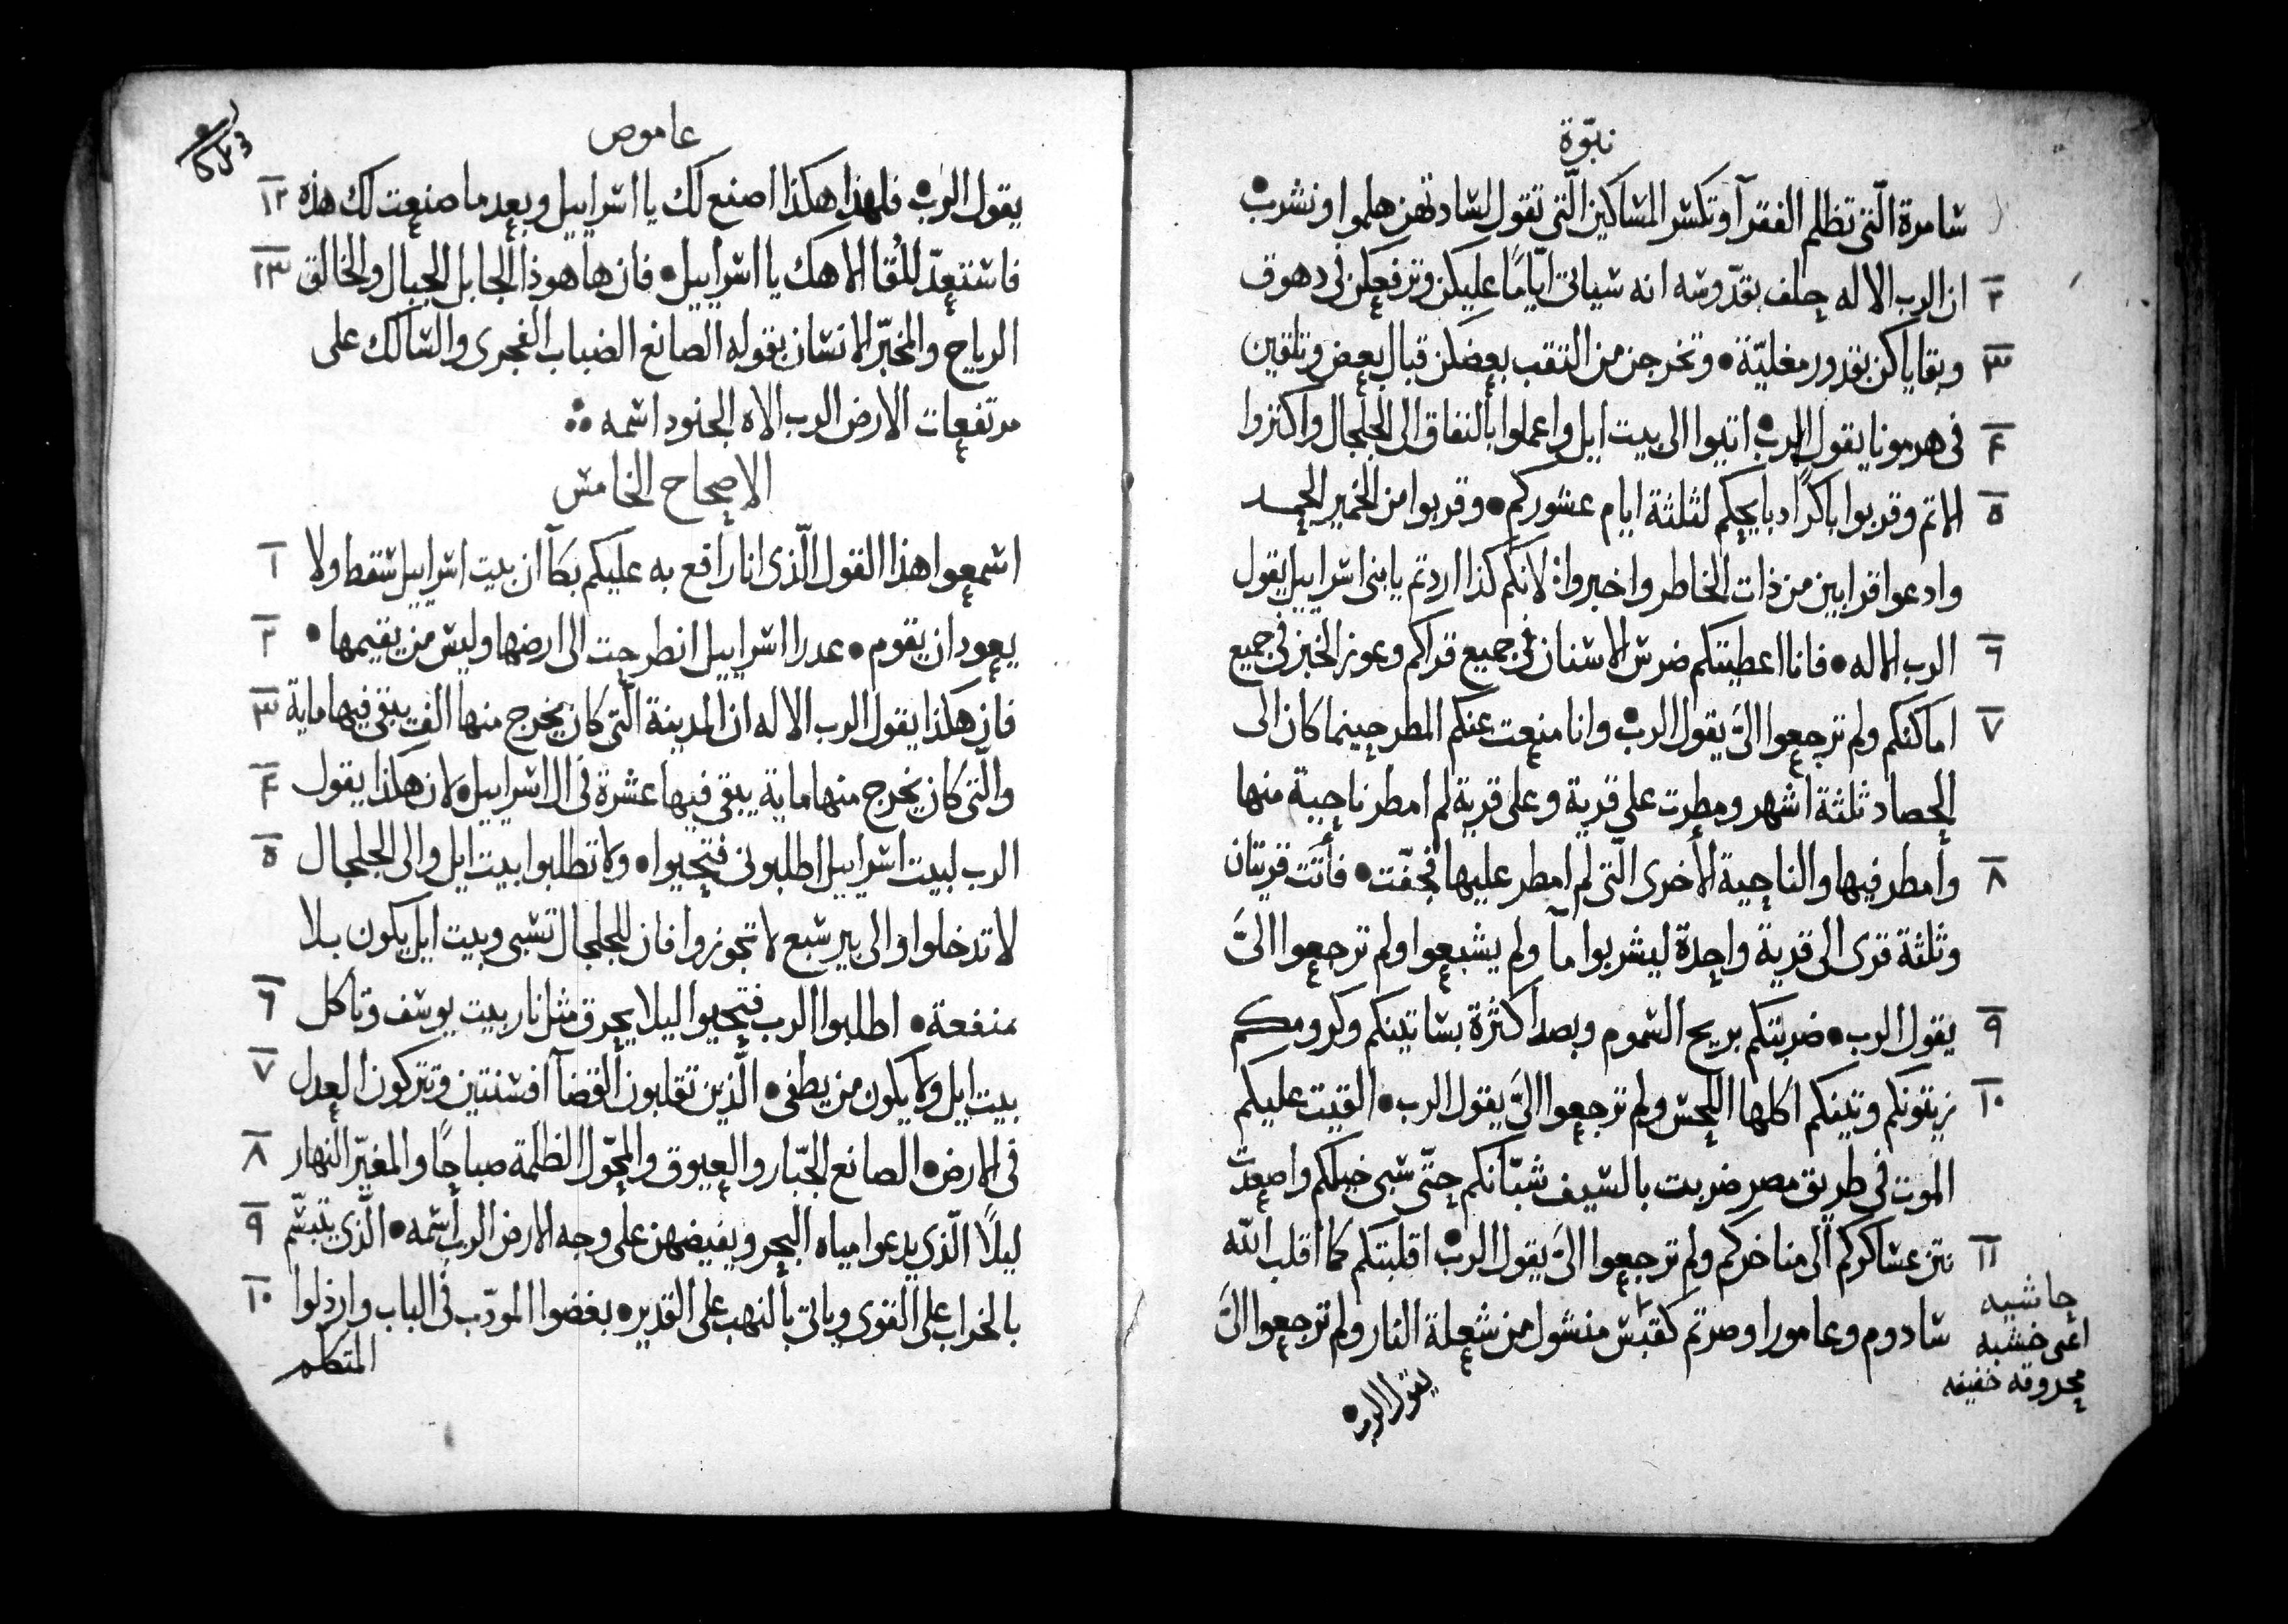 نبوّة
شامرة الّتى تظلم الفقرآ وتكسر المساكين الّتى تقول لساداتهن هلموا ونشرب
٢ ان الرب الاله حلف بقدّوسه انه سياتى ايّامًا عليكن وترفعكن فى دهوق
٣ وبقاياكن بقدور مغليّة • وتخرجن من النقب بعضكن قبال بعض وتلقين
٤ فى هرمونا يقول الرب • اتيوا الى بيت ايل واعملوا بالنفاق الى الجلجال واكثروا
٥ الاثم وقربوا باكرًا دبايحكم لثلثة ايام عشوركم • وقربوا من الخمير الحمد
وادعوا قرابين من ذات الخاطر واخبروا لانكم كذا اردتم يا بنى اسراييل يقول
٦ الرب الاله • فانا اعطيتكم ضرس الاسنان فى جميع قراكم وعوز الخبز فى جميع
٧ اماكنكم ولم ترجعوا الىّ يقول الرب • وانا منعت عنكم المطر حينما كان الى
الحصاد ثلثة اشهر ومطرت على قرية وعلى قرية لم امطر ناحية منها
٨ وأمطر فيها والناحية الأخرى الّتى لم امطر عليها فجفّت • فأتت قريتان
وثلثة قرى الى قرية واحدة ليشربوا مآ ولم يشبعوا ولم ترجعوا الىّ
٩ يقول الرب • ضربتكم بريح السموم وبصدا كثرة بساتينكم وكرومكم
١٠ زيتونكم وتينكم اكلها اللحس ولم ترجعوا الىّ يقول الرب • القيت عليكم
الموت فى طريق مصر ضربت بالسيف شبّانكم حتّى سبى خيلكم واصعدت
١١ نتن عساكركم الى مناخركم ولم ترجعوا الىّ يقول الرب • اقلبتكم كما أقلب اللّه
سادوم وعامورا وصرتم كقبس منشول من شعلة النار ولم ترجعوا الىّ
حاشيه
اعنى خشبه
محروقه خفيفه
يقول الرب •
عاموص
يقول الرب • فلهذا هكذا اصنع لك يا اسراييل وبعد ما صنعت لك هذه ١٢
فاستعدّ للقا الاهك يا اسراييل • فان ها هوذا الجابل الجبال والخالق ١٣
الرياح والمخبّر الانسان بقوله الصانع الضباب الفجرى والسالك على
مرتفعات الارض الرب الاه الجنود اسمه
الاصحاح الخامس
اسمعوا هذا القول الّذى انا رافع به عليكم بكآ ان بيت اسراييل سقط ولا ١
يعود ان يقوم • عدرا اسراييل انطرحت الى ارضها وليس من يقيمها • ٢
فان هكذا يقول الرب الاله ان المدينة الّتى كان يخرج منها الف يبقى فيها ماية ٣
والّتى كان يخرج منها ماية يبقى فيها عشرة فى ال اسراييل • لان هكذا يقول ٤
الرب لبيت اسراييل اطلبونى فتحيوا • ولا تطلبوا بيت ايل والى الجلجال ٥
لا تدخلوا والى بير سبع لا تجوزوا فان الجلجال تسبى وبيت ايل يكون بلا
منفعة • اطلبوا الرب فتحيوا ليلا يحرق مثل نار بيت يوسف وتاكل ٦
بيت ايل ولا يكون من يطفى • الّذين تقلبون القضآ افسنتين وتتركون العدل ٧
فى الارض • الصانع الجبّار والعيوق والمحوّل الظلمة صباحًا والمغيّر النهار ٨
ليلًا الّذى يدعوا مياه البحر ويفيضهن على وجه الارض الرب أسمه • الّذى يتبسّم ٩
بالخراب على القوى وياتى بالنهب على القدير • بغضوا المودّب فى الباب وارذلوا ١٠
المتكلم